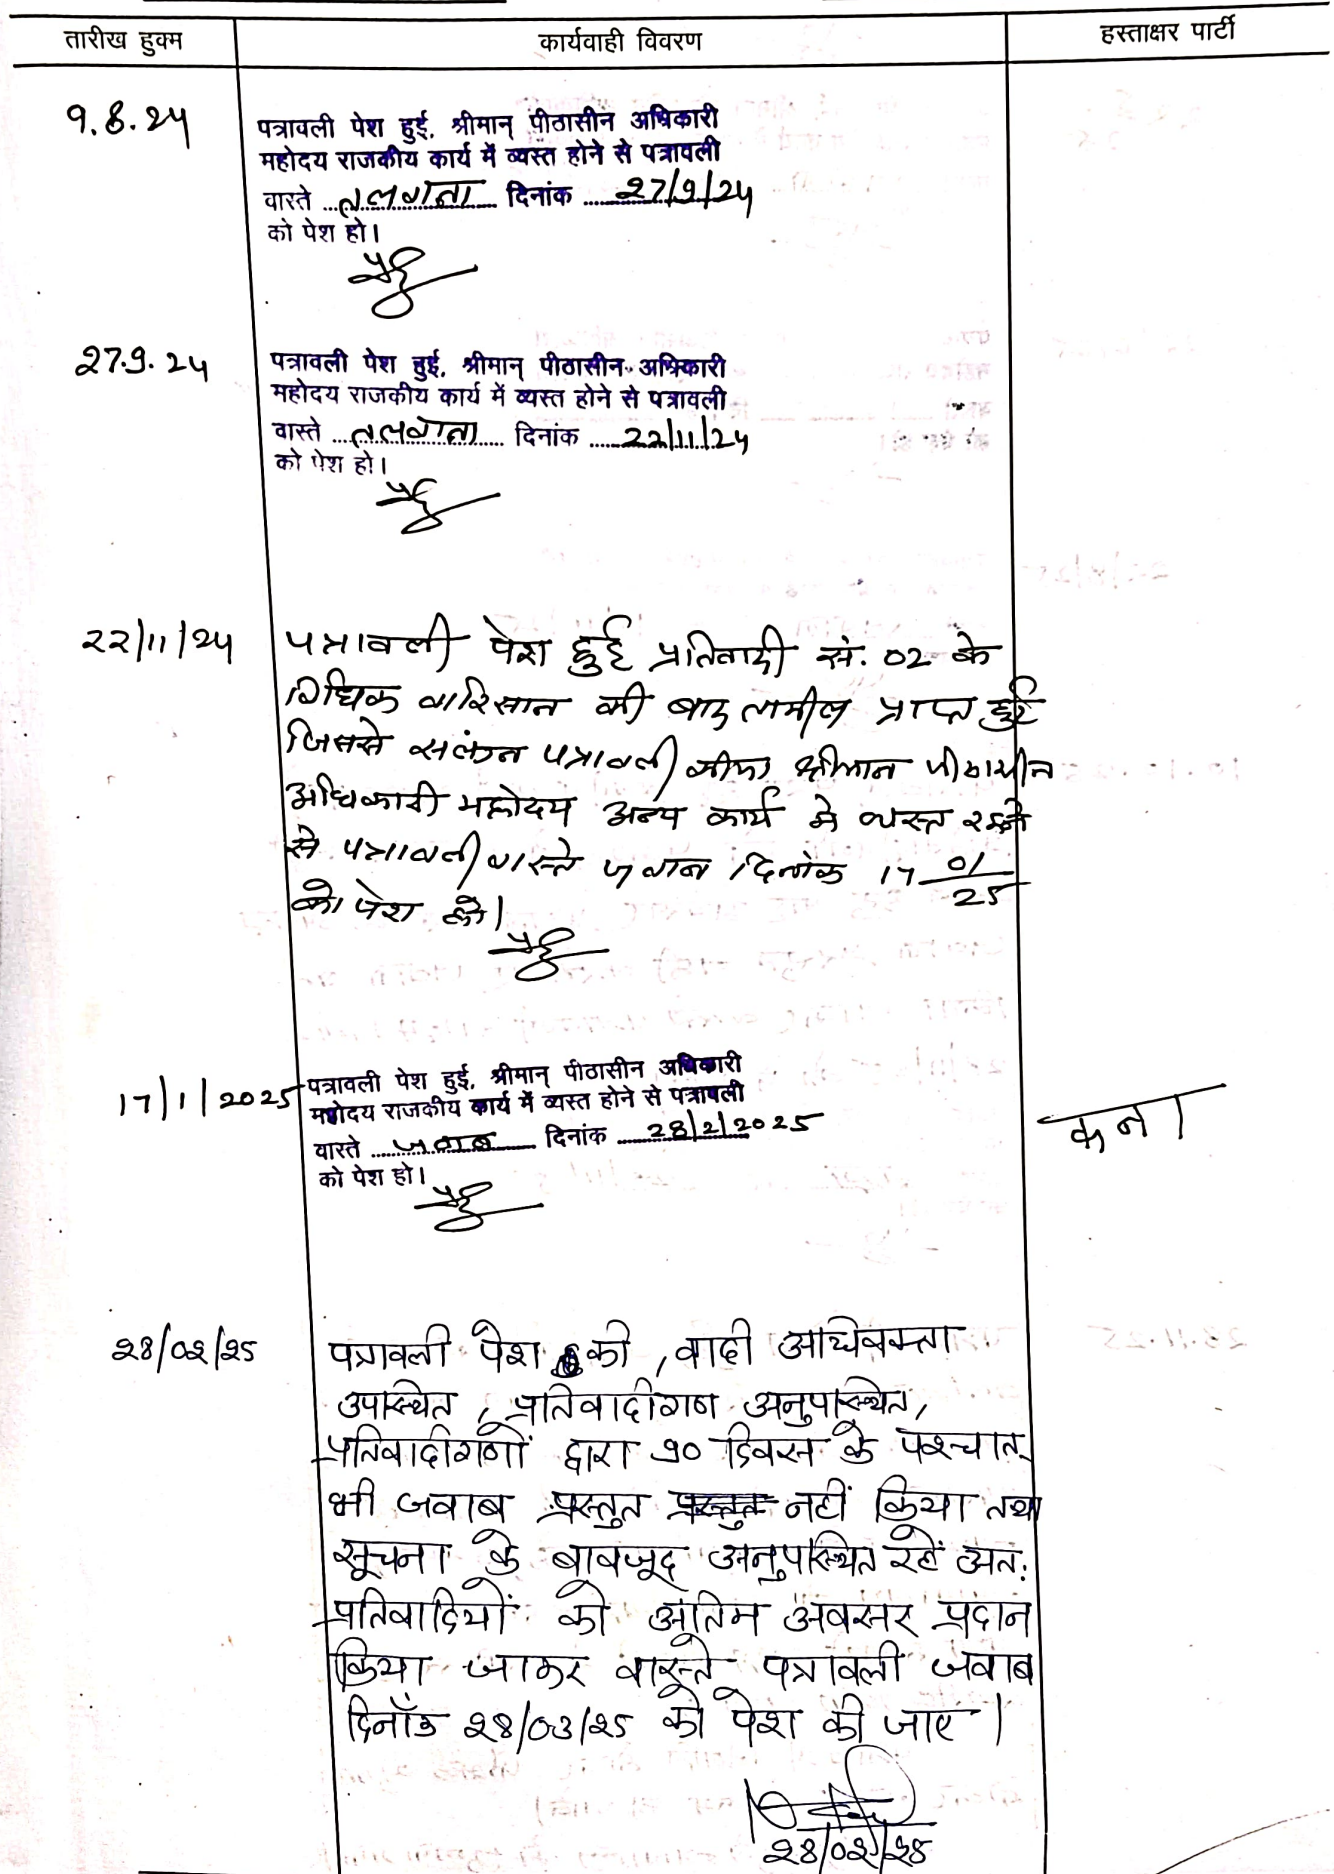 तारीख हुक्म कार्यवाही विवरण हस्ताक्षर पार्टी
9.8.24 पत्रावली पेश हुई, श्रीमान् पीठासीन अधिकारी
महोदय राजकीय कार्य में व्यस्त होने से पत्रावली
वास्ते तलवाना दिनांक 27/9/24
को पेश हो।
27.9.24 पत्रावली पेश हुई, श्रीमान् पीठासीन अधिकारी
महोदय राजकीय कार्य में व्यस्त होने से पत्रावली
वास्ते तलवाना दिनांक 22/11/24
को पेश हो।
22/11/24 पत्रावली पेश हुई प्रतिवादी सं. 02 के
विधिक वारिसान की बाद तामील प्राप्त हुई
जिससे सलंग्न पत्रावली श्रीमान पीठासीन
अधिकारी महोदय अन्य कार्य मे व्यस्त रहने
से पत्रावली वास्ते जवाब दिनांक 17 01/25
को पेश हो।
17/1/2025 पत्रावली पेश हुई, श्रीमान् पीठासीन अधिकारी
महोदय राजकीय कार्य में व्यस्त होने से पत्रावली
वास्ते जवाब दिनांक 28/2/2025
को पेश हो।
28/02/25 पत्रावली पेश की, वादी अधिवक्ता
उपस्थित, प्रतिवादीगण अनुपस्थित,
प्रतिवादीगणों द्वारा 90 दिवस के पश्चात
भी जवाब प्रस्तुत प्रस्तुत नहीं किया तथा
सूचना के बावजूद अनुपस्थित रहें अतः
प्रतिवादियों को अंतिम अवसर प्रदान
किया जाकर वास्ते पत्रावली जवाब
दिनाँक 28/03/25 को पेश की जाए।
28/02/25